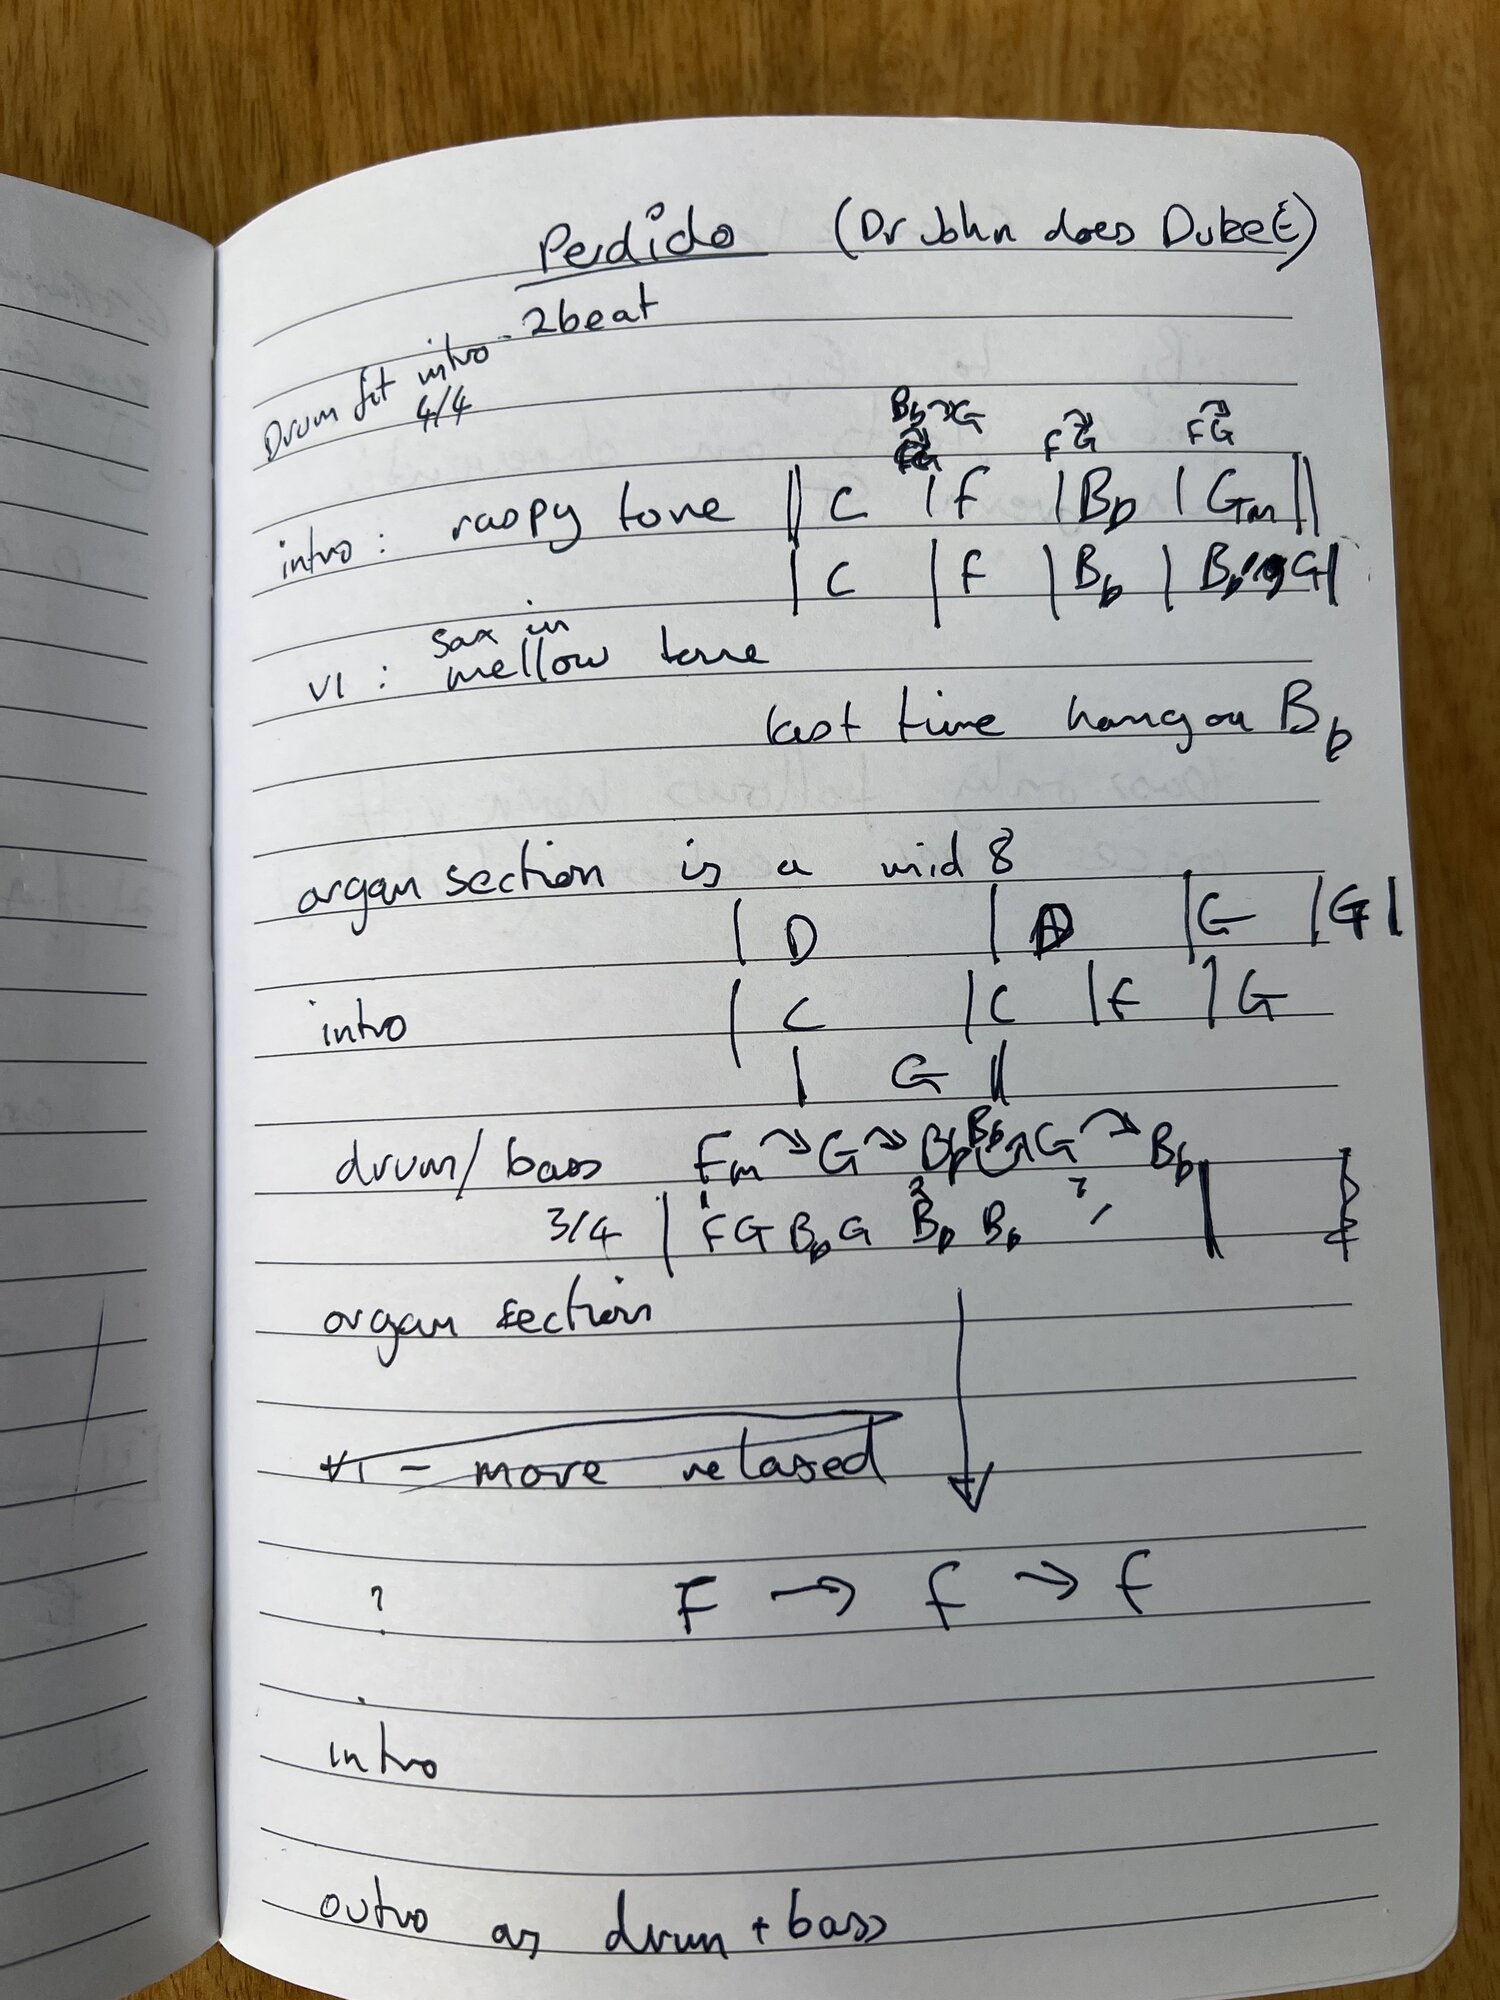 Perdido (Dr John does Duke E)
2beat
Drum fit intro -
4/4
Bb → G
F G F G
intro : raspy tone || C | F | Bb | Gm ||
| C | F | Bb | Bb G |
V1 : sax in
mellow tone
last time hang on Bb
organ section is a mid 8
| D | D | G | G |
intro | C | C | F | G
| G ||
drum/bass Fm → G → Bb Bb → G → Bb
3/4 | F G Bb G Bb Bb
organ section
V1 - more relaxed
? F → F → F
intro
outro as drum + bass